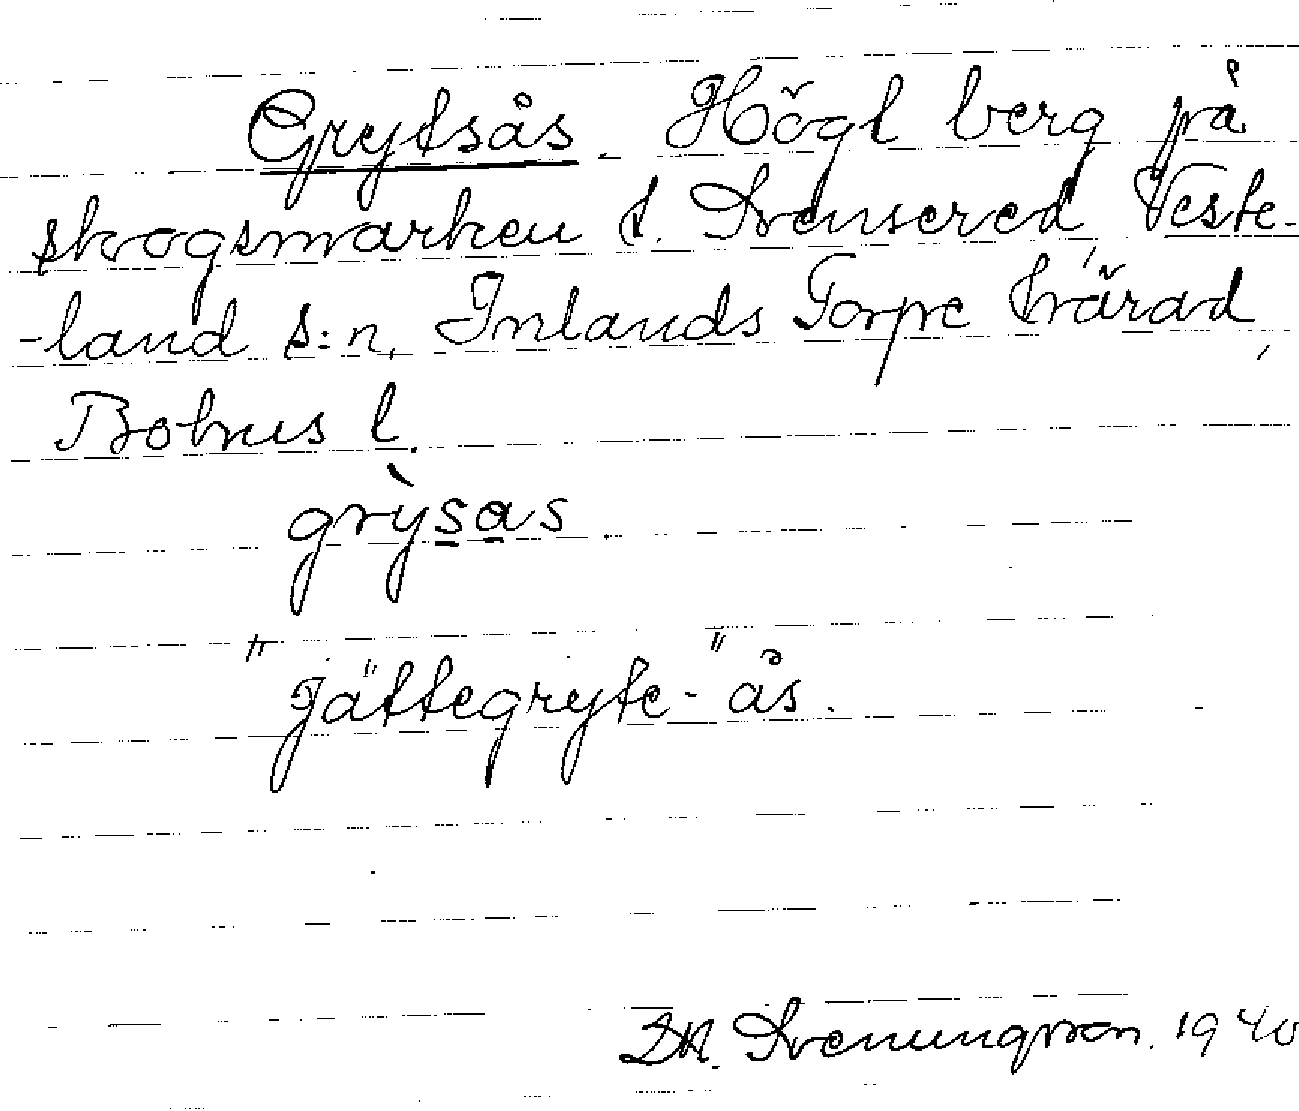 Grytsås. Högt berg på
skogsmarken t. Svensered, Veste-
-land s:n, Inlands Torpe härad,
Bohus l.
grỳsas
"Jättegryte-" ås.
Svenungsson. 1940